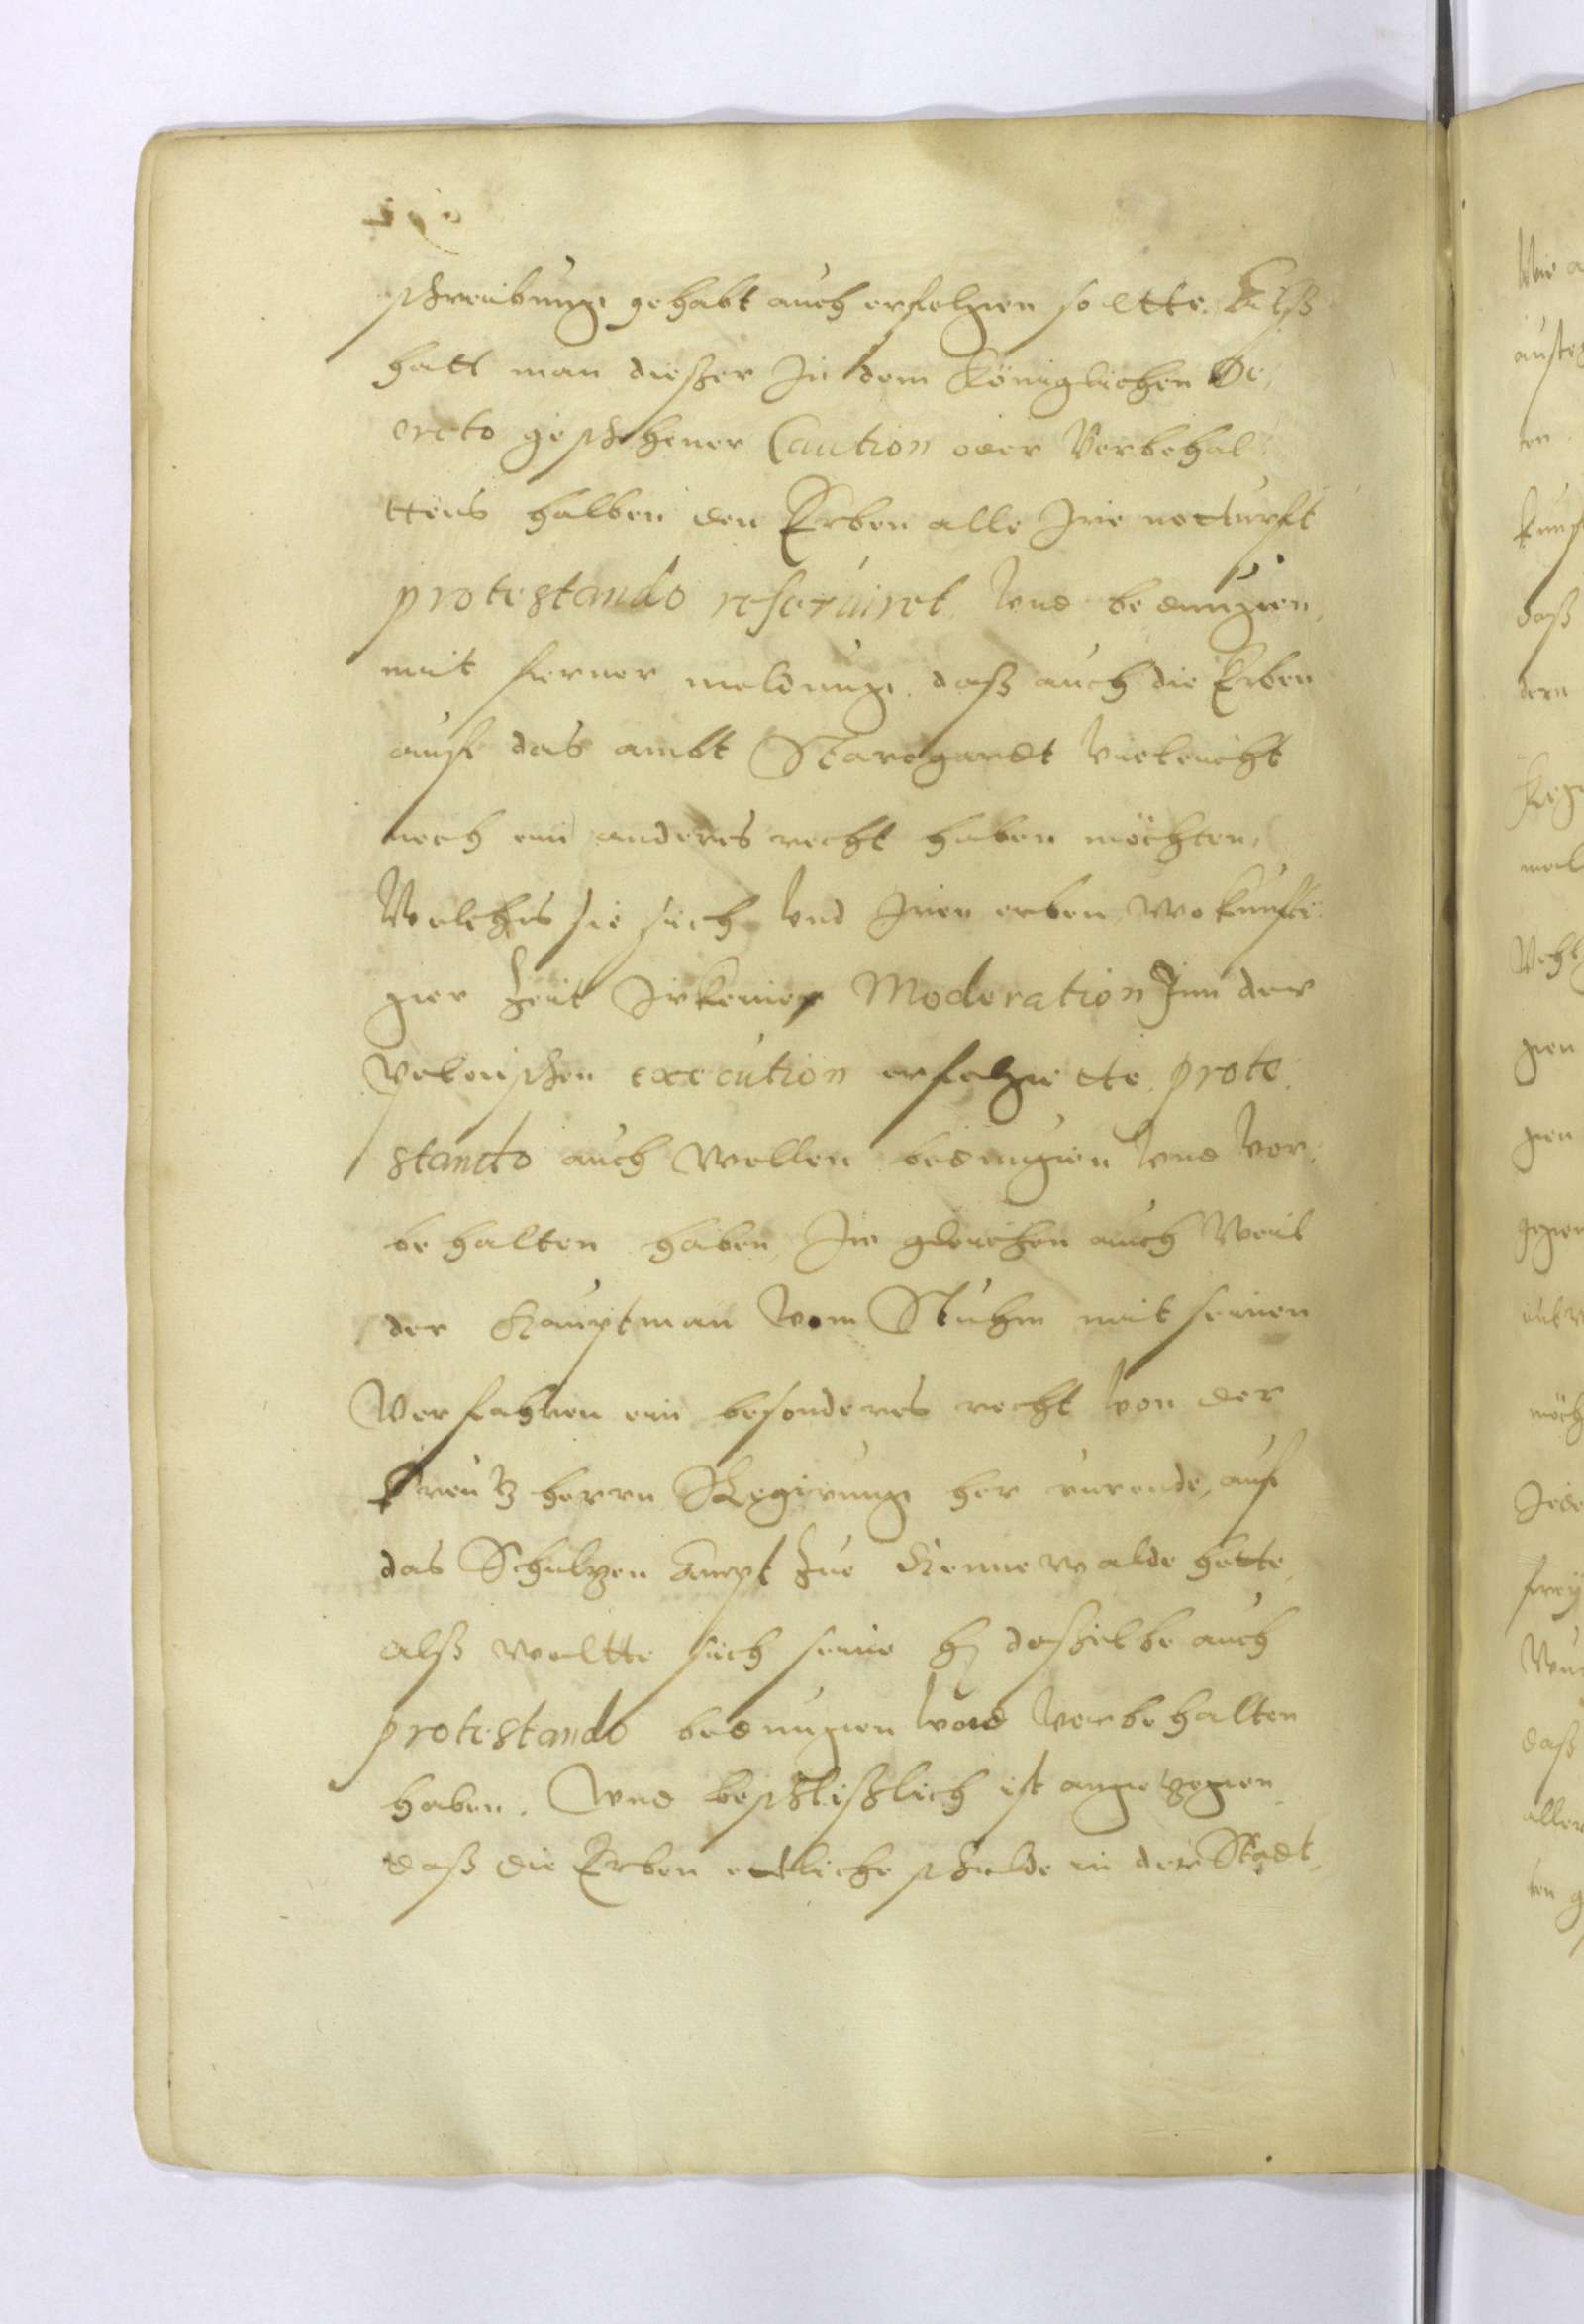 schreibunge gehabt auch erfolgen soltte. Alß
hatt man dießer In dem Königlichen De,
creto geschehener Caution oder Vorbehal,
ttens halben den Erben alle Ire notturfft
protestando reseruiret Vnd bedungen,
mit ferner meldunge, daß auch die Erben
auff das ambt Starogardt Vieleicht
noch ein anderes recht haben möchten,
Welches sie sich Vnd Iren erben, wo künffti,
ger Zeit Irkeine Moderation Inn der
Polnischen execution erfolgette prote,
stando auch Wollen bedungen Vnd Vor,
behalten haben, Im gleichen auch Weil
der Hauptman Vom Stuhm mit seinen
Vorfahren ein besonderes recht Von der
Kreutzherrn Regirunge her rurende, auf
das Schultzen Ampt Zue Konnewalde hette,
alß woltte sich seine h. daßelbe auch
protestando bedungen Vnd Vorbehalten
haben. Vnd beschlißlich ist angezogen,
daß die Erben etliche schulde in der Stadt,